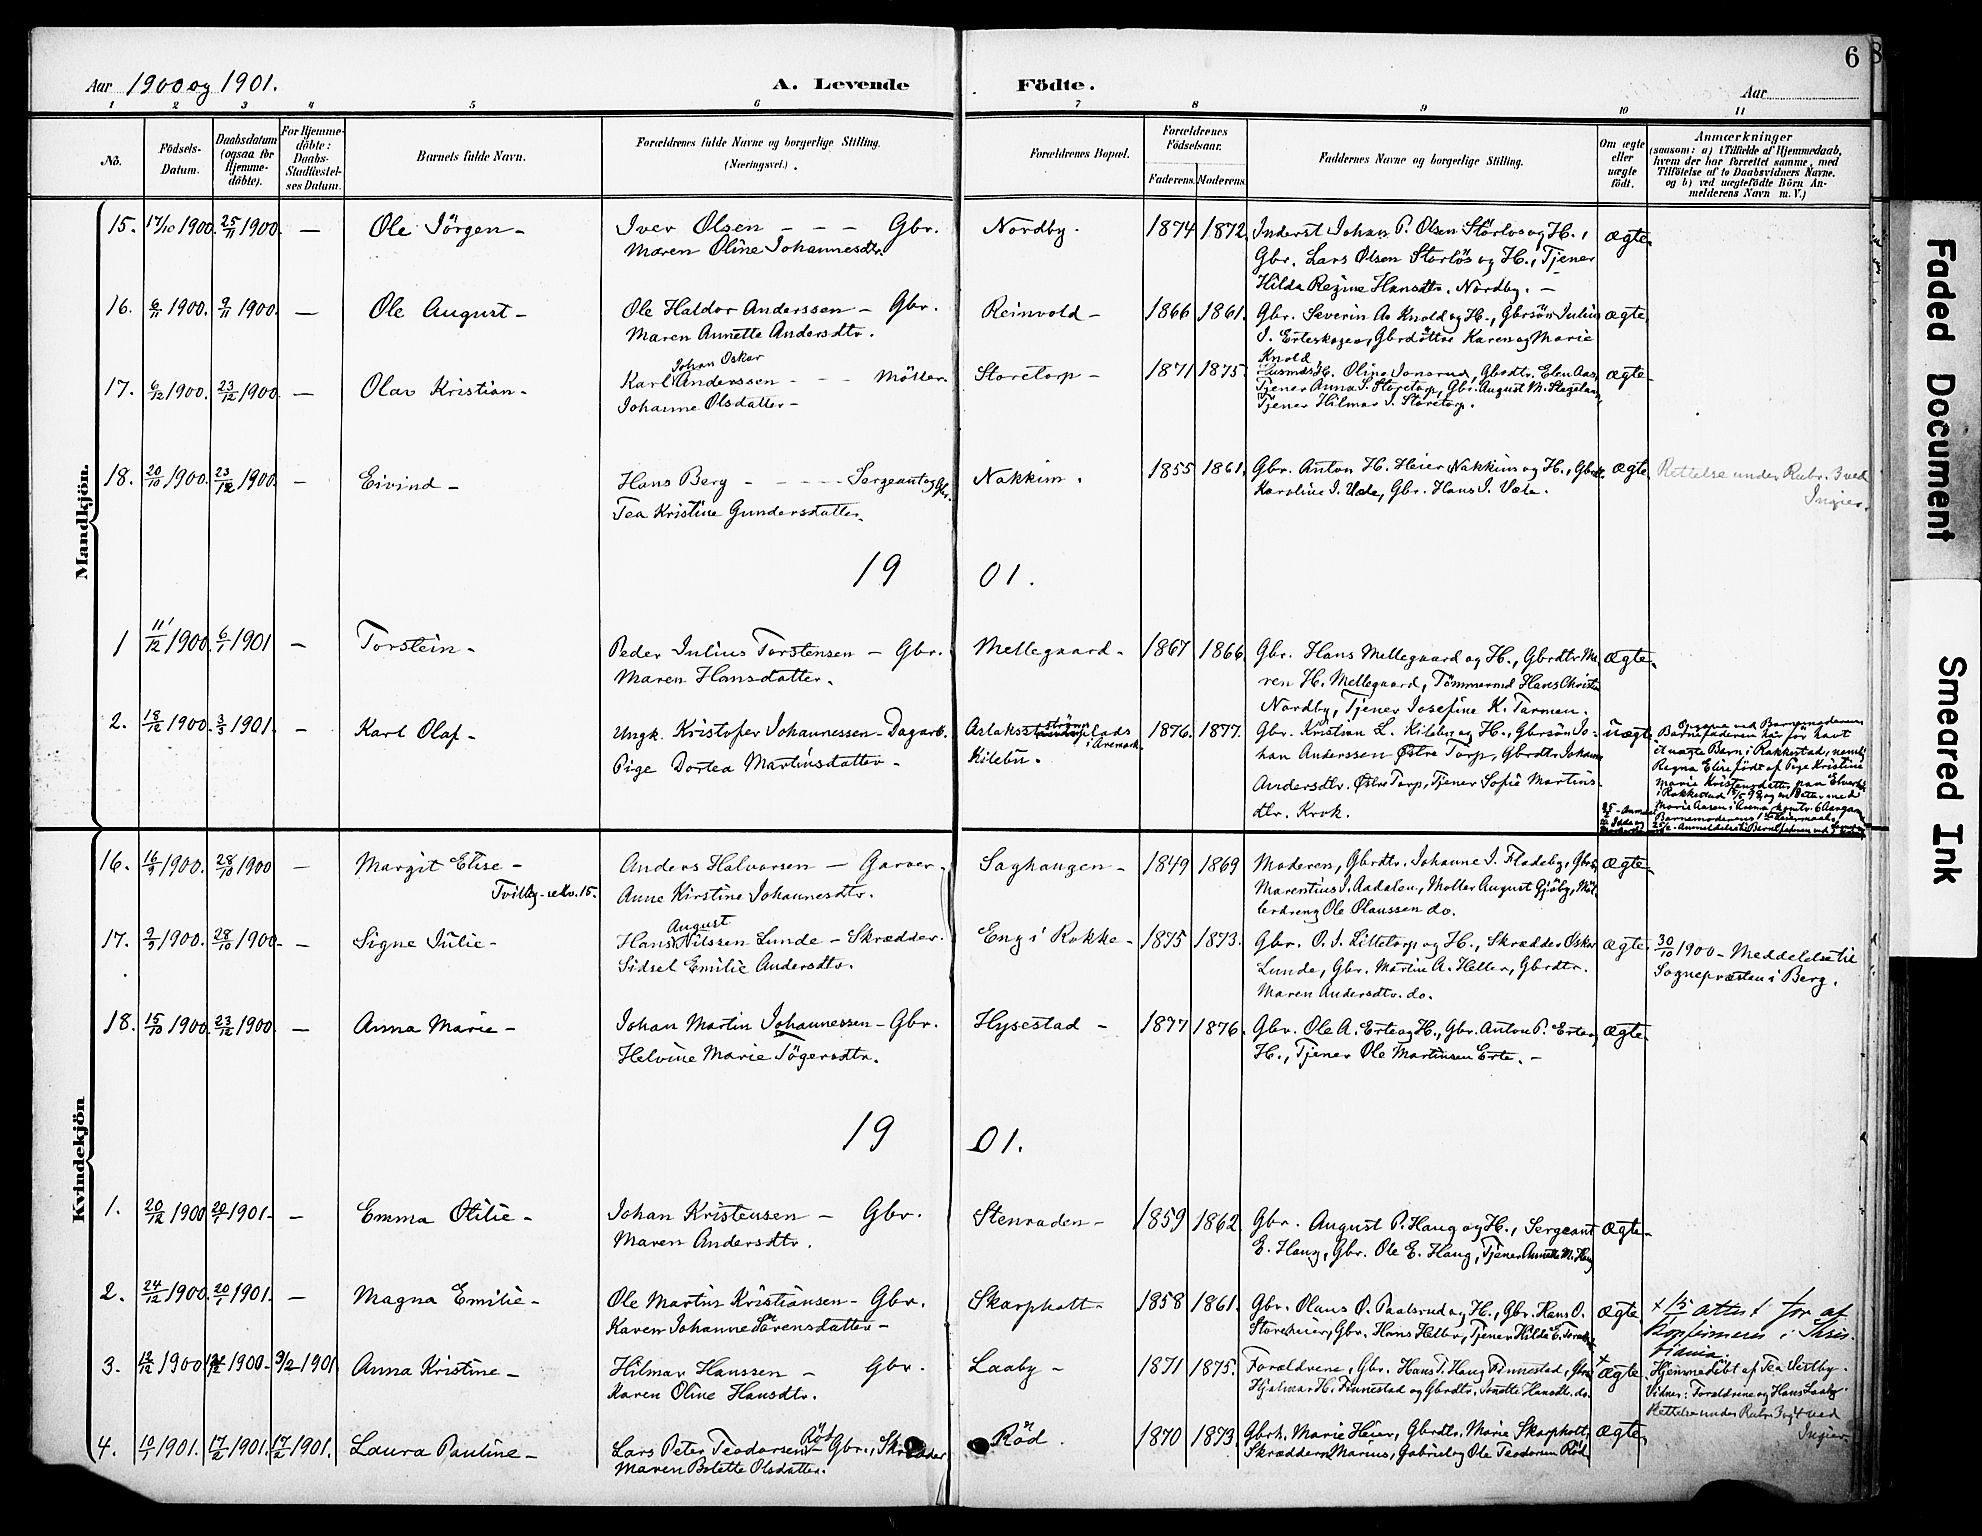 Aar 1900 og 1901.
A. Levende Födte.
Aar
6
8
1 2 3 4 5 6 7 8 9 10 11
No.
Födsels-Datum.
Daabsdatum (ogsaa for Hjemme-döbte).
For Hjemme-döbte: Daabs-Stadfæstel-ses Datum.
Barnets fulde Navn.
Forældrenes fulde Navne og borgerlige Stilling. (Næringsvei.)
Forældrenes Bopæl.
Forældrenes Födselsaar.
Faderens. Moderens.
Faddernes Navne og borgerlige Stilling.
Om ægte eller uægte födt.
Anmærkninger
(saasom: a) i Tilfælde af Hjemmedaab,
hvem der har forrettet samme, med
Tilföielse af to Daabsvidners Navne.
og b) ved uægtefödte Börn An-
melderens Navn m. V.)
Mandkjön.
15. 17/10 1900. 25/11 1900. — Ole Jörgen - Iver Olsen - - - Gbr. Nordby. 1874 1872. Inderst Johan P. Olsen Störlos og H., ægte.
Maren Oline Johannesdtr. Gbr. Lars Olsen Storlös og H., Tjener
Hilda Regine Hansdtr. Nordby. -
16. 6/11 1900. 9/11 1900. — Ole August - Ole Haldor Anderssen - Gbr. Reinvold - 1866 1861. Gbr. Severin A. Knold og H., Gbrsön Julius ægte.
Maren Annette Andersdtr. I. Erteskogen, Gbrdöttre Karen og Marie
Knold
17. 6/12 1900. 23/12 1900. — Olav Kristian - Karl Johan Oskar Anderssen - - Möller. Storetorp - 1871 1875. Husmds H. Oline Sonsrud, Gbrdtr. Elen Aas, ægte -
Johanne Olsdatter - Tjener Anna S. Storetorp, Gbr. August M.
Tjener Hilmar I. Storetorp.
18. 20/10 1900. 23/12 1900. — Eivind - Hans Berg - - - - Sergeant og Gbr. Nakkim. 1855 1861. Gbr. Anton H. Heier Nakkim og H., ægte. Rettelse under Rubr. 3 ved
Tea Kristine Gundersdatter. Karoline I. Væle, Gbr. Hans I. Væle. Ingier.
19 01.
1 11/12 1900. 6/1 1901 — Torstein - Peder Julius Torstensen - Gbr. Mellegaard - 1867 1866. Gbr. Hans Mellegaard og H., Gbrdtr Ma- ægte.
Maren Hansdatter. ren H. Mellegaard, Tömmermd Hans Christian
Nordby, Tjener Josefine K. Tarmen.
2. 18/12 1900. 3/3 1901. Karl Olaf - Ungk. Kristofer Johannessen - Dagarb. Aslakströmstads i Aremark 1876. 1877. Gbr. Kristian L. Kilebu og H., Gbrsön Jo- uægte
Pige Dortea Martinsdatter - Kilebu. han Anderssen Østre Torp, Gbrdtr Johanne
Andersdtr. Østre Torp, Tjener Sofie Martins-
dtr. Krok.
Opgave ved Barnemoderen
Barnefaderen har för havt
et uægte Barn i Rakkestad, nemlig
Regna Elise födt af Pige Kristine
Marie Kristiansdatter
Kvindekjön
16. 16/9 1900. 28/10 1900 — Margit Elise - Anders Halvorsen - Garver. Saghaugen - 1849 1869 Moderen, Gbrdtr. Johanne I. Fladeby, ægte -
Tvilling - se No. 15. Anne Kirstine Johannesdtr. Marentius I. Aadalen, Moller August Gjölby, Möl-
lerdreng Ole Olaussen do.
17. 2/9 1900. 28/10 1900 — Signe Julie - Hans August Nilssen Lunde - Skrædder. Eng i Rokke - 1875 1873. Gbr. O. I. Littetorp og H., Skrædder Oskar ægte. 30/10 1900 - Meddelelse til
Sidsel Emilie Andersdtr. Lunde, Gbr. Martin A. Heller, Gbrdtr. Sognepræsten i Berg.
Maren Andersdtr. do.
18. 15/10 1900. 23/12 1900. — Anna Marie - Johan Martin Johannessen - Gbr. Hysestad - 1877 1876. Gbr. Ole A. Erte og H., Gbr. Anton P. Erte ægte.
Helvine Marie Tögersdtr. H., Tjener Ole Martinsen Erte. -
19 01.
1. 20/12 1900 20/1 1901. — Emma Otilie - Johan Kristensen - Gbr. Stenraden - 1859 1862. Gbr. August P. Haug og H., Sergeant ægte -
Maren Andersdtr. E. Haug, Gbr. Ole E. Haug, Tjener Annette M. Haug
2. 24/12 1900. 20/1 1901. — Magna Emilie - Ole Martin Kristiansen - Gbr. Skarpholt - 1858 1861. Gbr. Olaus O. Paalsrud og H., Gbr. Hans O. ægte. attest for at
Karen Johanne Sörensdatter - Storeheier, Gbr. Hans Heller, Tjener Hilda E. konfirmeres i Kris-
tiania.
3. 12/12 1900 1900 - 3/2 1901 Anna Kristine - Hilmar Hanssen - Gbr. Laaby - 1871 1875. Forældrene, Gbr. Hans T. Haug Finnestad, ægte. Hjemmedöbt af Tea Sertby.
Karen Oline Hansdtr. Hjalmar H. Finnestad og Gbrdtr. Anette Hansdtr. do. Vidner: Forældrene og Hans Laaby.
Rettelse under Rubr. 3 og 4 ved
Ingier.
4. 10/1 1901. 17/2 1901. 17/2 1901. Laura Pauline - Lars Peter Teodorsen Röd - Gbr., Skrædder Röd. 1870 1873. Gbrk. Marie Heier, Gbrdtr. Marie Skarpholt, ægte.
Maren Bolette Olsdatter. Skræddern Marius, Gabriel og Ole Teodorsen Röd
Faded Document
Smeared Ink